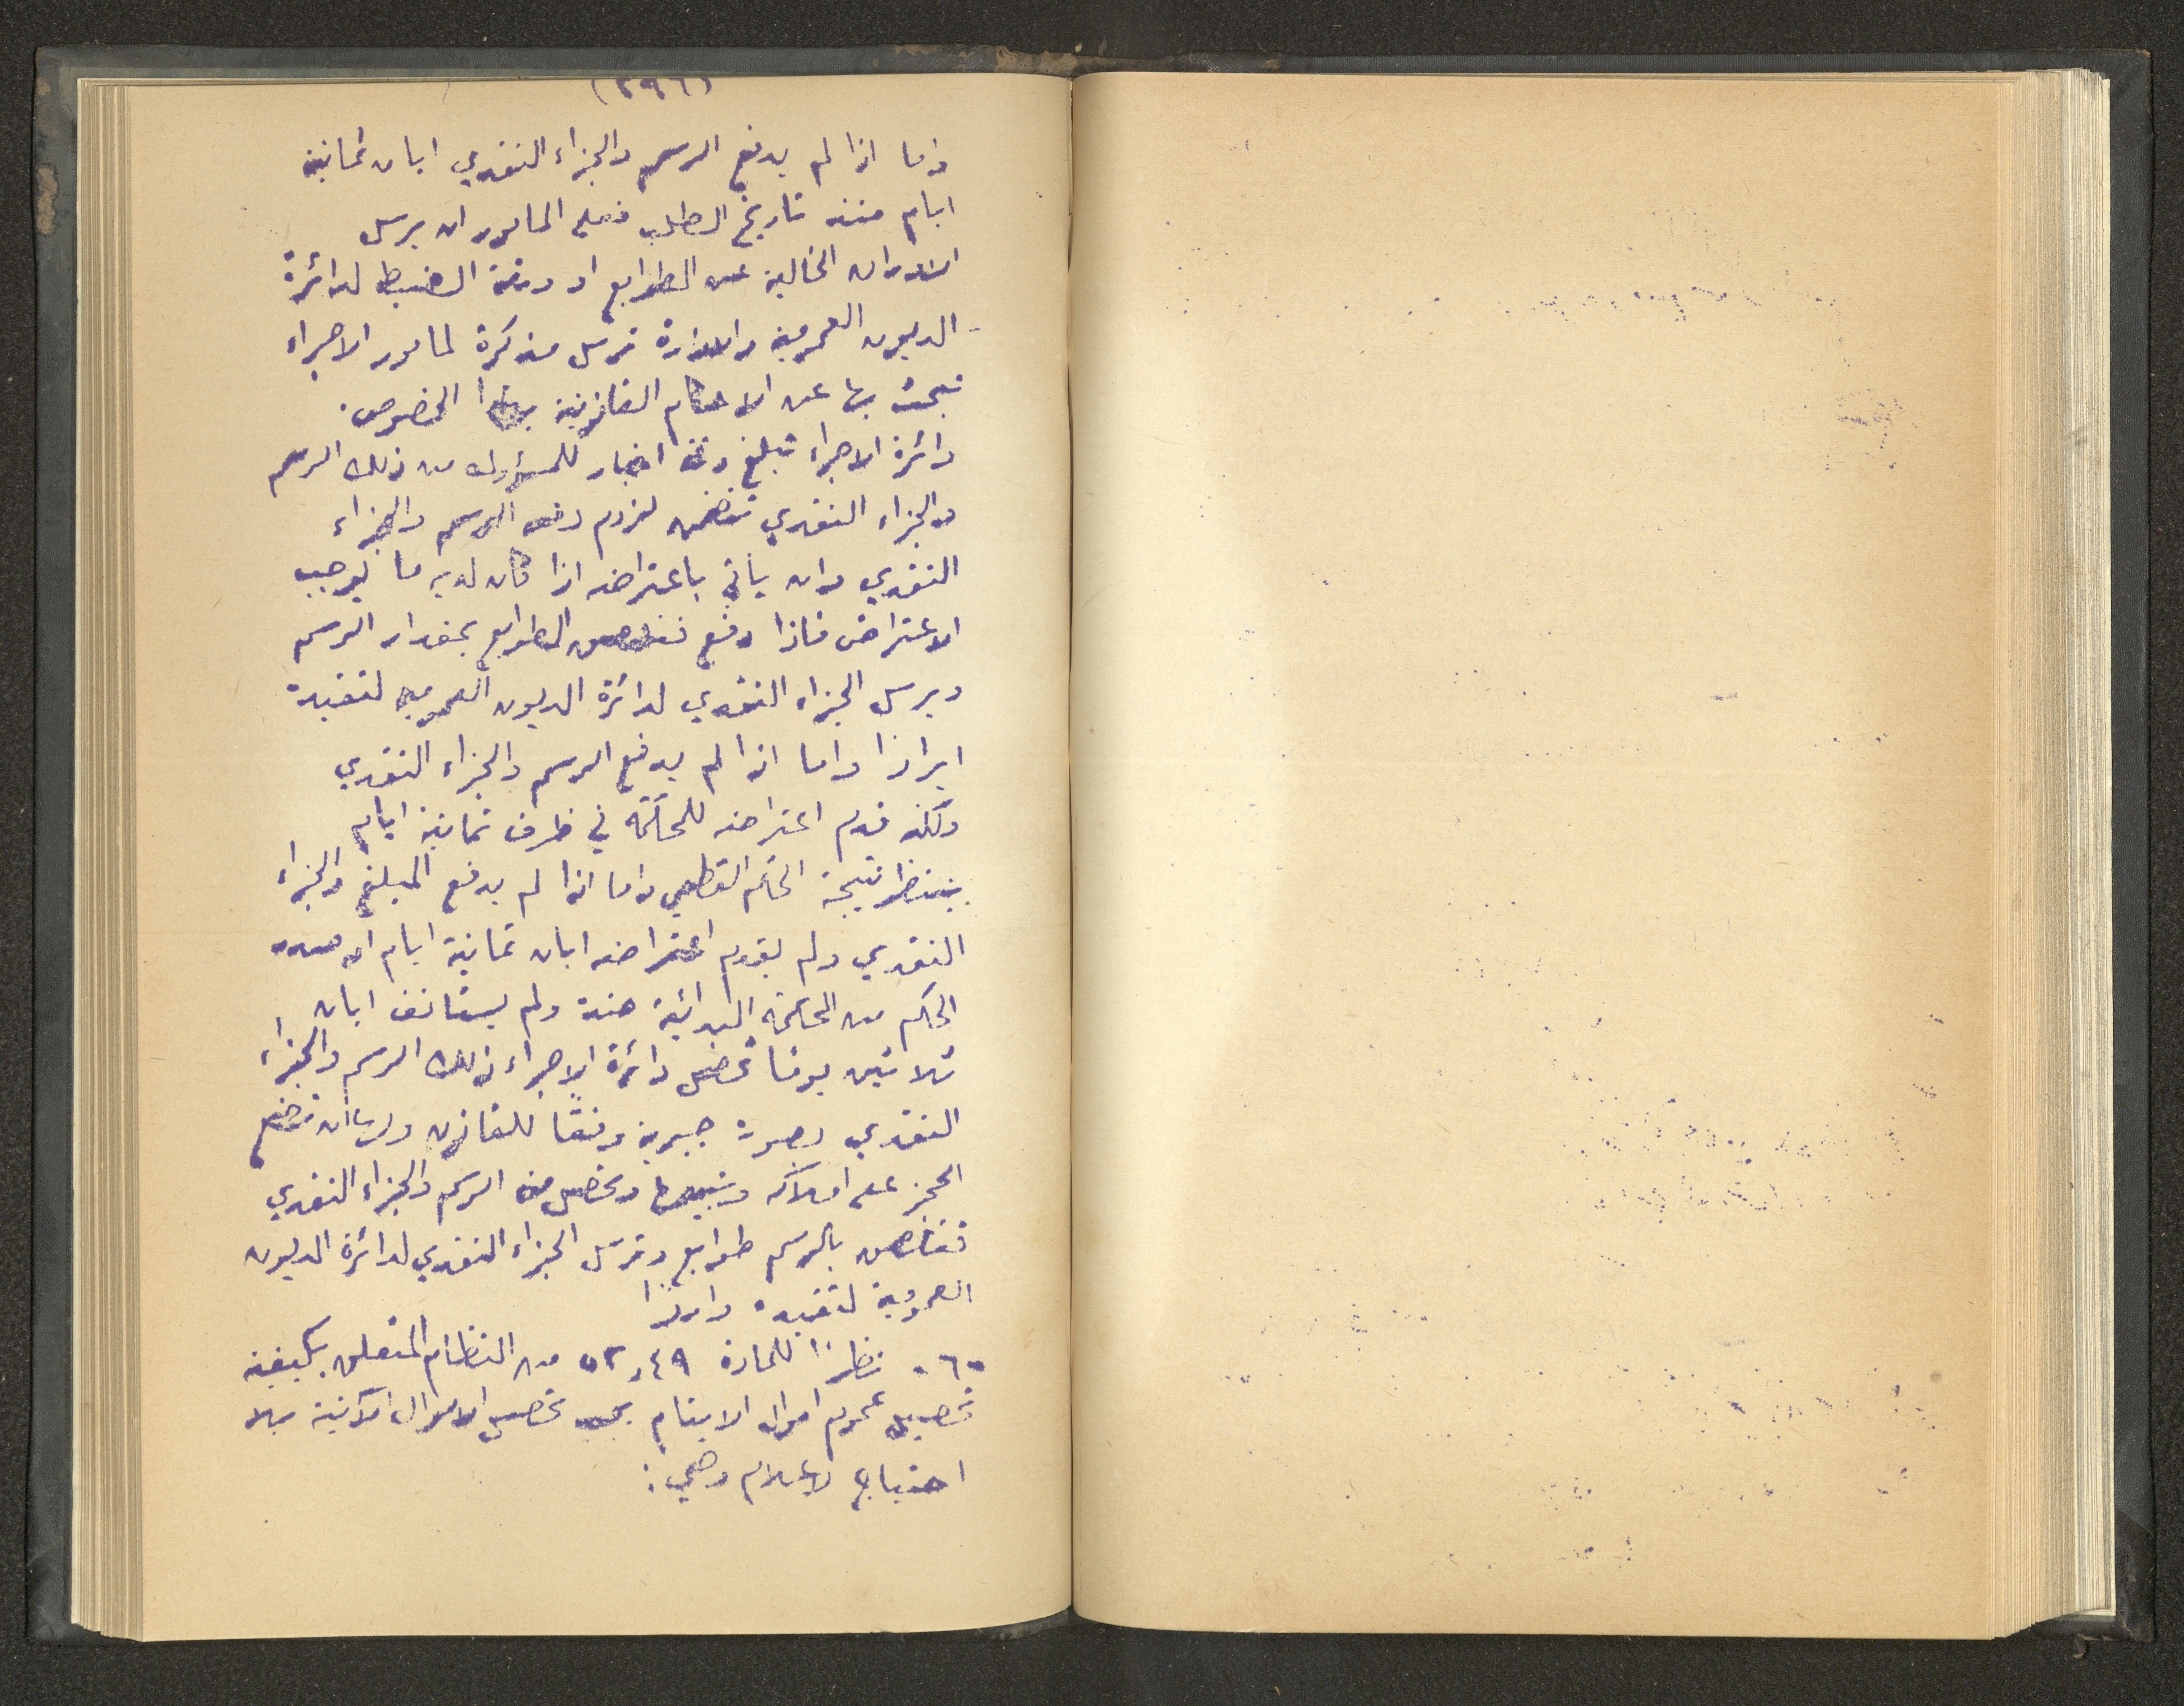 (٢٩٦)
واما اذا لم يدفع الرسم والجزاء النقدي ابان ثمانية
ايام منذ تاريخ الطلب فعلى المامور ان يرسل
الاوراق الخالية عن الطوابع او ورقة الضبط لدائرة
الديون العمومية والادارة ترسل مذكرة لمامور الاجراء
تبحث بها عن الاحكام القانونية بهذا الخصوص.
دائرة الاجراء تبلغ ورقة اخبار للمسؤول من ذلك الرسم
والجزاء النقدي تتضمن لزوم دفعه الرسم والجزاء
النقدي وان ياتي باعتراضه اذا كان لديه ما يوجب
الاعتراض فاذا دفع الطوابع بمقدار الرسم
ويرسل الجزاء النقدي لدائرة الديون العمومية لتقيده
ايرادا واما اذا لم يدفع الرسم والجزاء النقدي
ولكنه قدم اعتراضه للمحكمة في ظرف ثمانية ايام
ينتظر نتيجة الحكم القطعي واما اذا لم يدفع المبلغ والجزاء
النقدي ولم يقدم اعتراضه ابان ثمانية ايام او صدر
الحكم من المحكمة البدائية ضده ولم يستانف ابان
ثلاثين يوما تحصل دائرة الاجراء ذلك الرسم والجزاء
النقدي بصورة جبرية وفقًا للقانون ولها ان تضع
الحجز على املاكه وتبيعها وتحصل منه الرسم والجزاء النقدي
بالرسم طوابع وترسل الجزاء النقدي لدائرة الديون
العمومية لتقيده ايرادا
٦٠- نظرًا للمادة ٤٩ و ٥٢ من النظام المتعلق بكيفية
تحصيل عموم اموال الايتام يجب تحصيل الاموال الاتية بلا
احتياج لاعلام وهي: